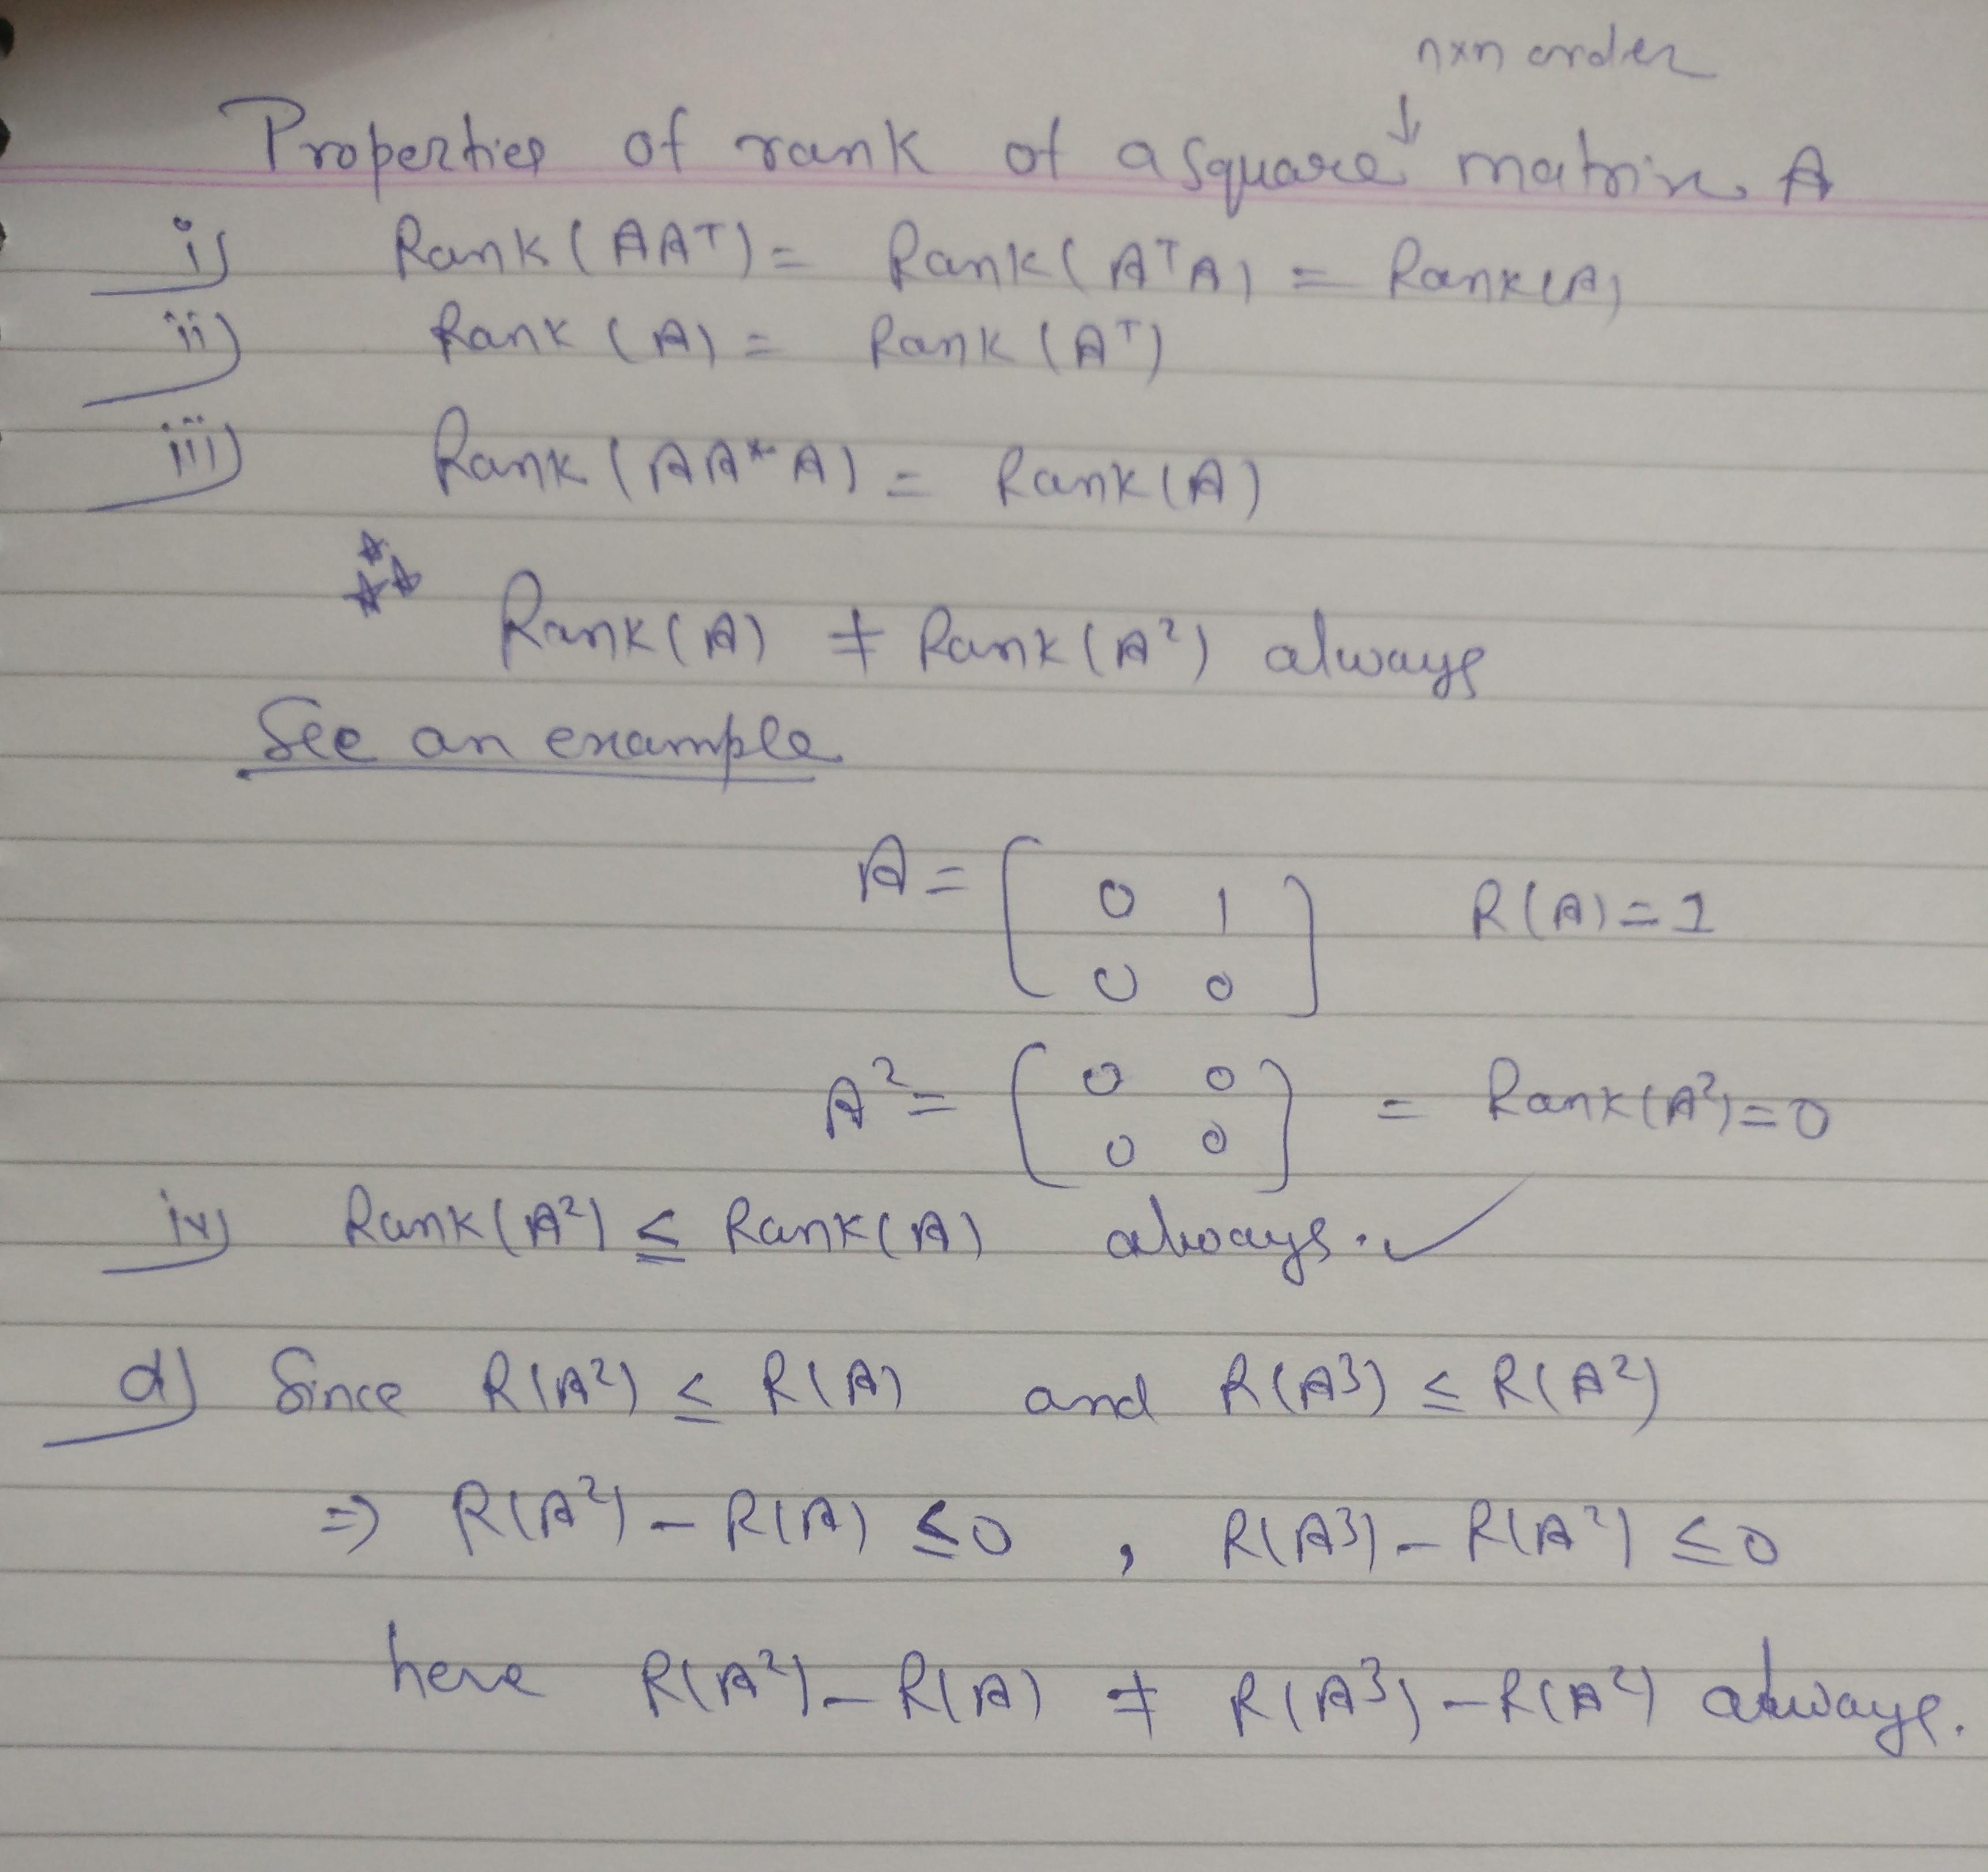 n×n order
↓
Properties of rank of a square matrix A
i) Rank(AAᵀ) = Rank(AᵀA) = Rank(A)
ii) Rank(A) = Rank(Aᵀ)
iii) Rank(AA*A) = Rank(A)
☆☆☆ Rank(A) ≠ Rank(A²) always
See an example
A = [ 0 1 R(A) = 1
0 0 ]
A² = [ 0 0 = Rank(A²) = 0
0 0 ]
iv) Rank(A²) ≤ Rank(A) always. ✓
d) Since R(A²) ≤ R(A) and R(A³) ≤ R(A²)
⇒ R(A²) – R(A) ≤ 0 , R(A³) – R(A²) ≤ 0
here R(A²) – R(A) ≠ R(A³) – R(A²) always.